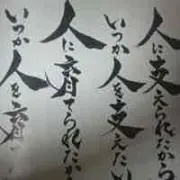 人に支えられたから
いつか人を支えたい
人に育てられたか
いつか人を育